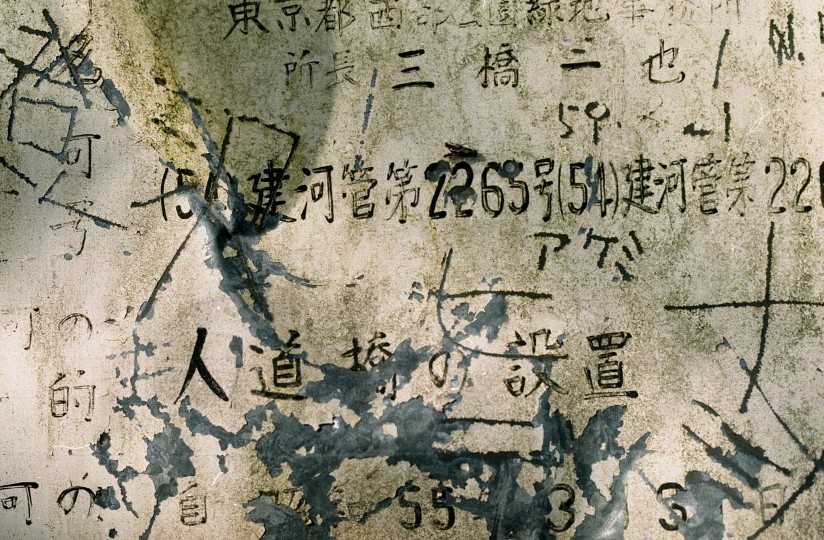 東京都西部公園緑地事務所
所長 三橋二也
59.
可 (54)建河管第2265号(54)建河管第226
号
アケミ
可の 人道橋の設置
的
可の 自 昭 55 3 3 日